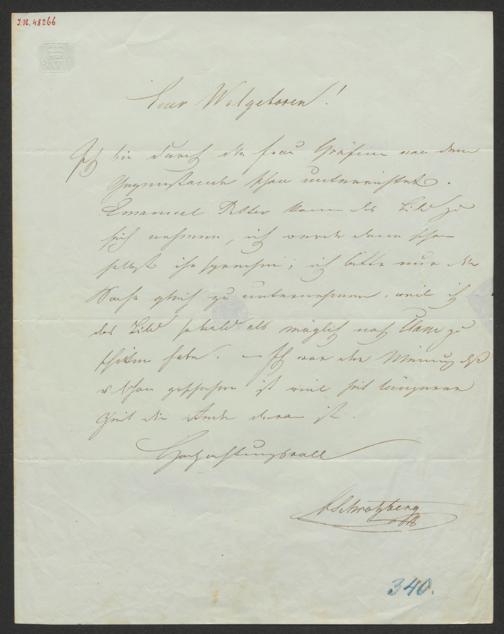 I.N. 48266
Euer Wolgeboren!
Ich bin durch die Frau Gräfin von dem
Gegenstande schon unterrichtet.
Emanuel Ritter kann das Bild zu
sich nehmen, ich werde dann schon
selbst ihn sprechen; ich bitte nur die
Sache gleich zu unternehmen, weil ich
das Bild sobald als möglich nach zu
schicken habe. – Ich war der Meinung daß
es schon geschehen ist weil seit längerer
Zeit die Rede davon ist.
Hochachtungsvoll
Schrotzberg
340.